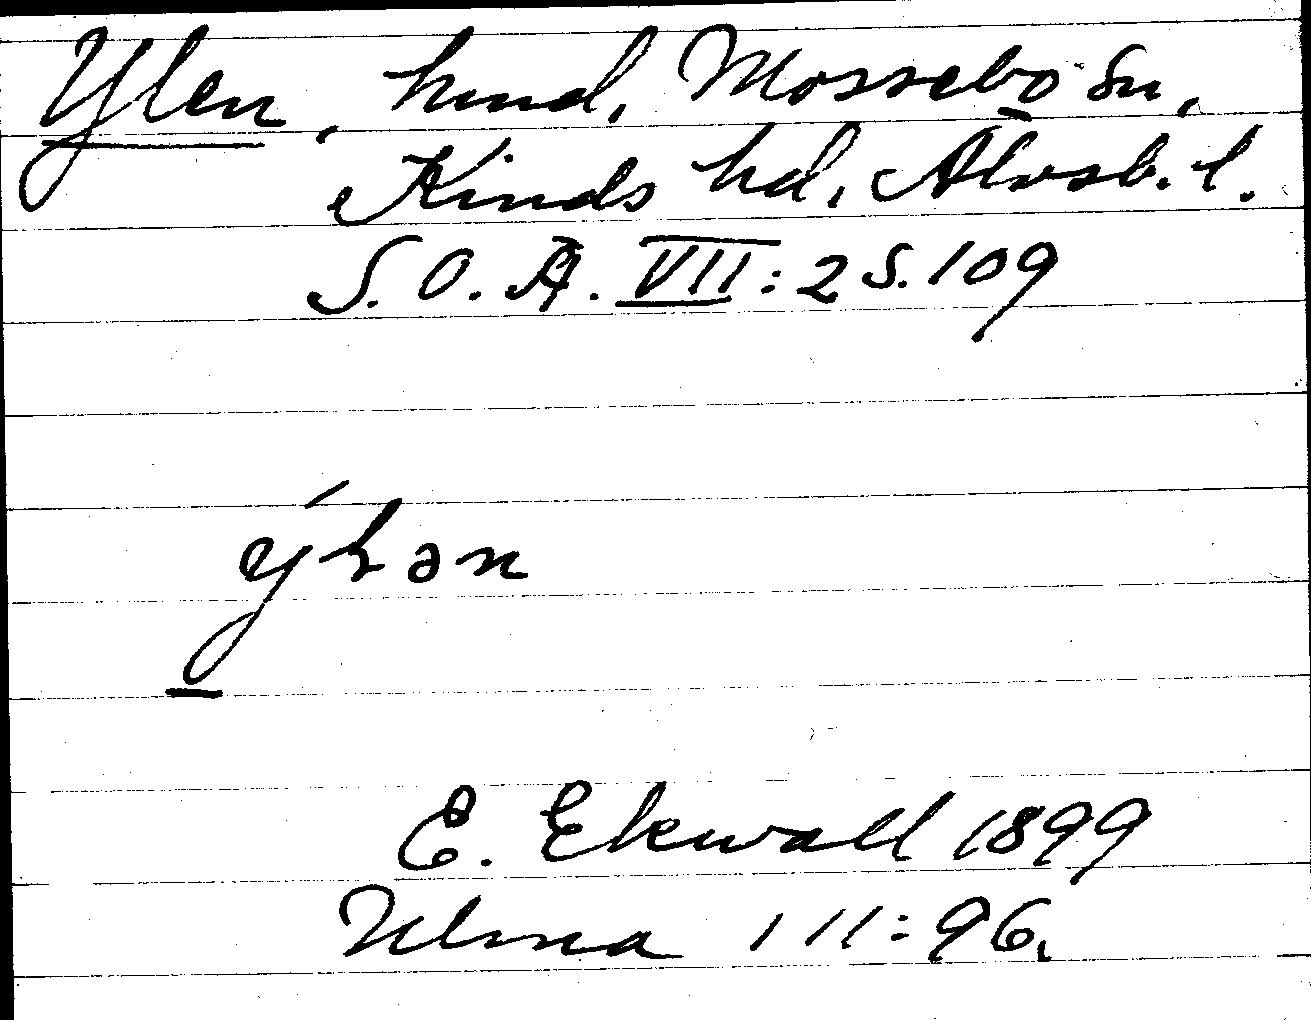 Ylen, hmd. Mossebo sn,
Kinds hd, Älvsb. l.
S. O. Ä. VII: 2 S. 109
E. Ekwall 1899
Ulma 111:96.